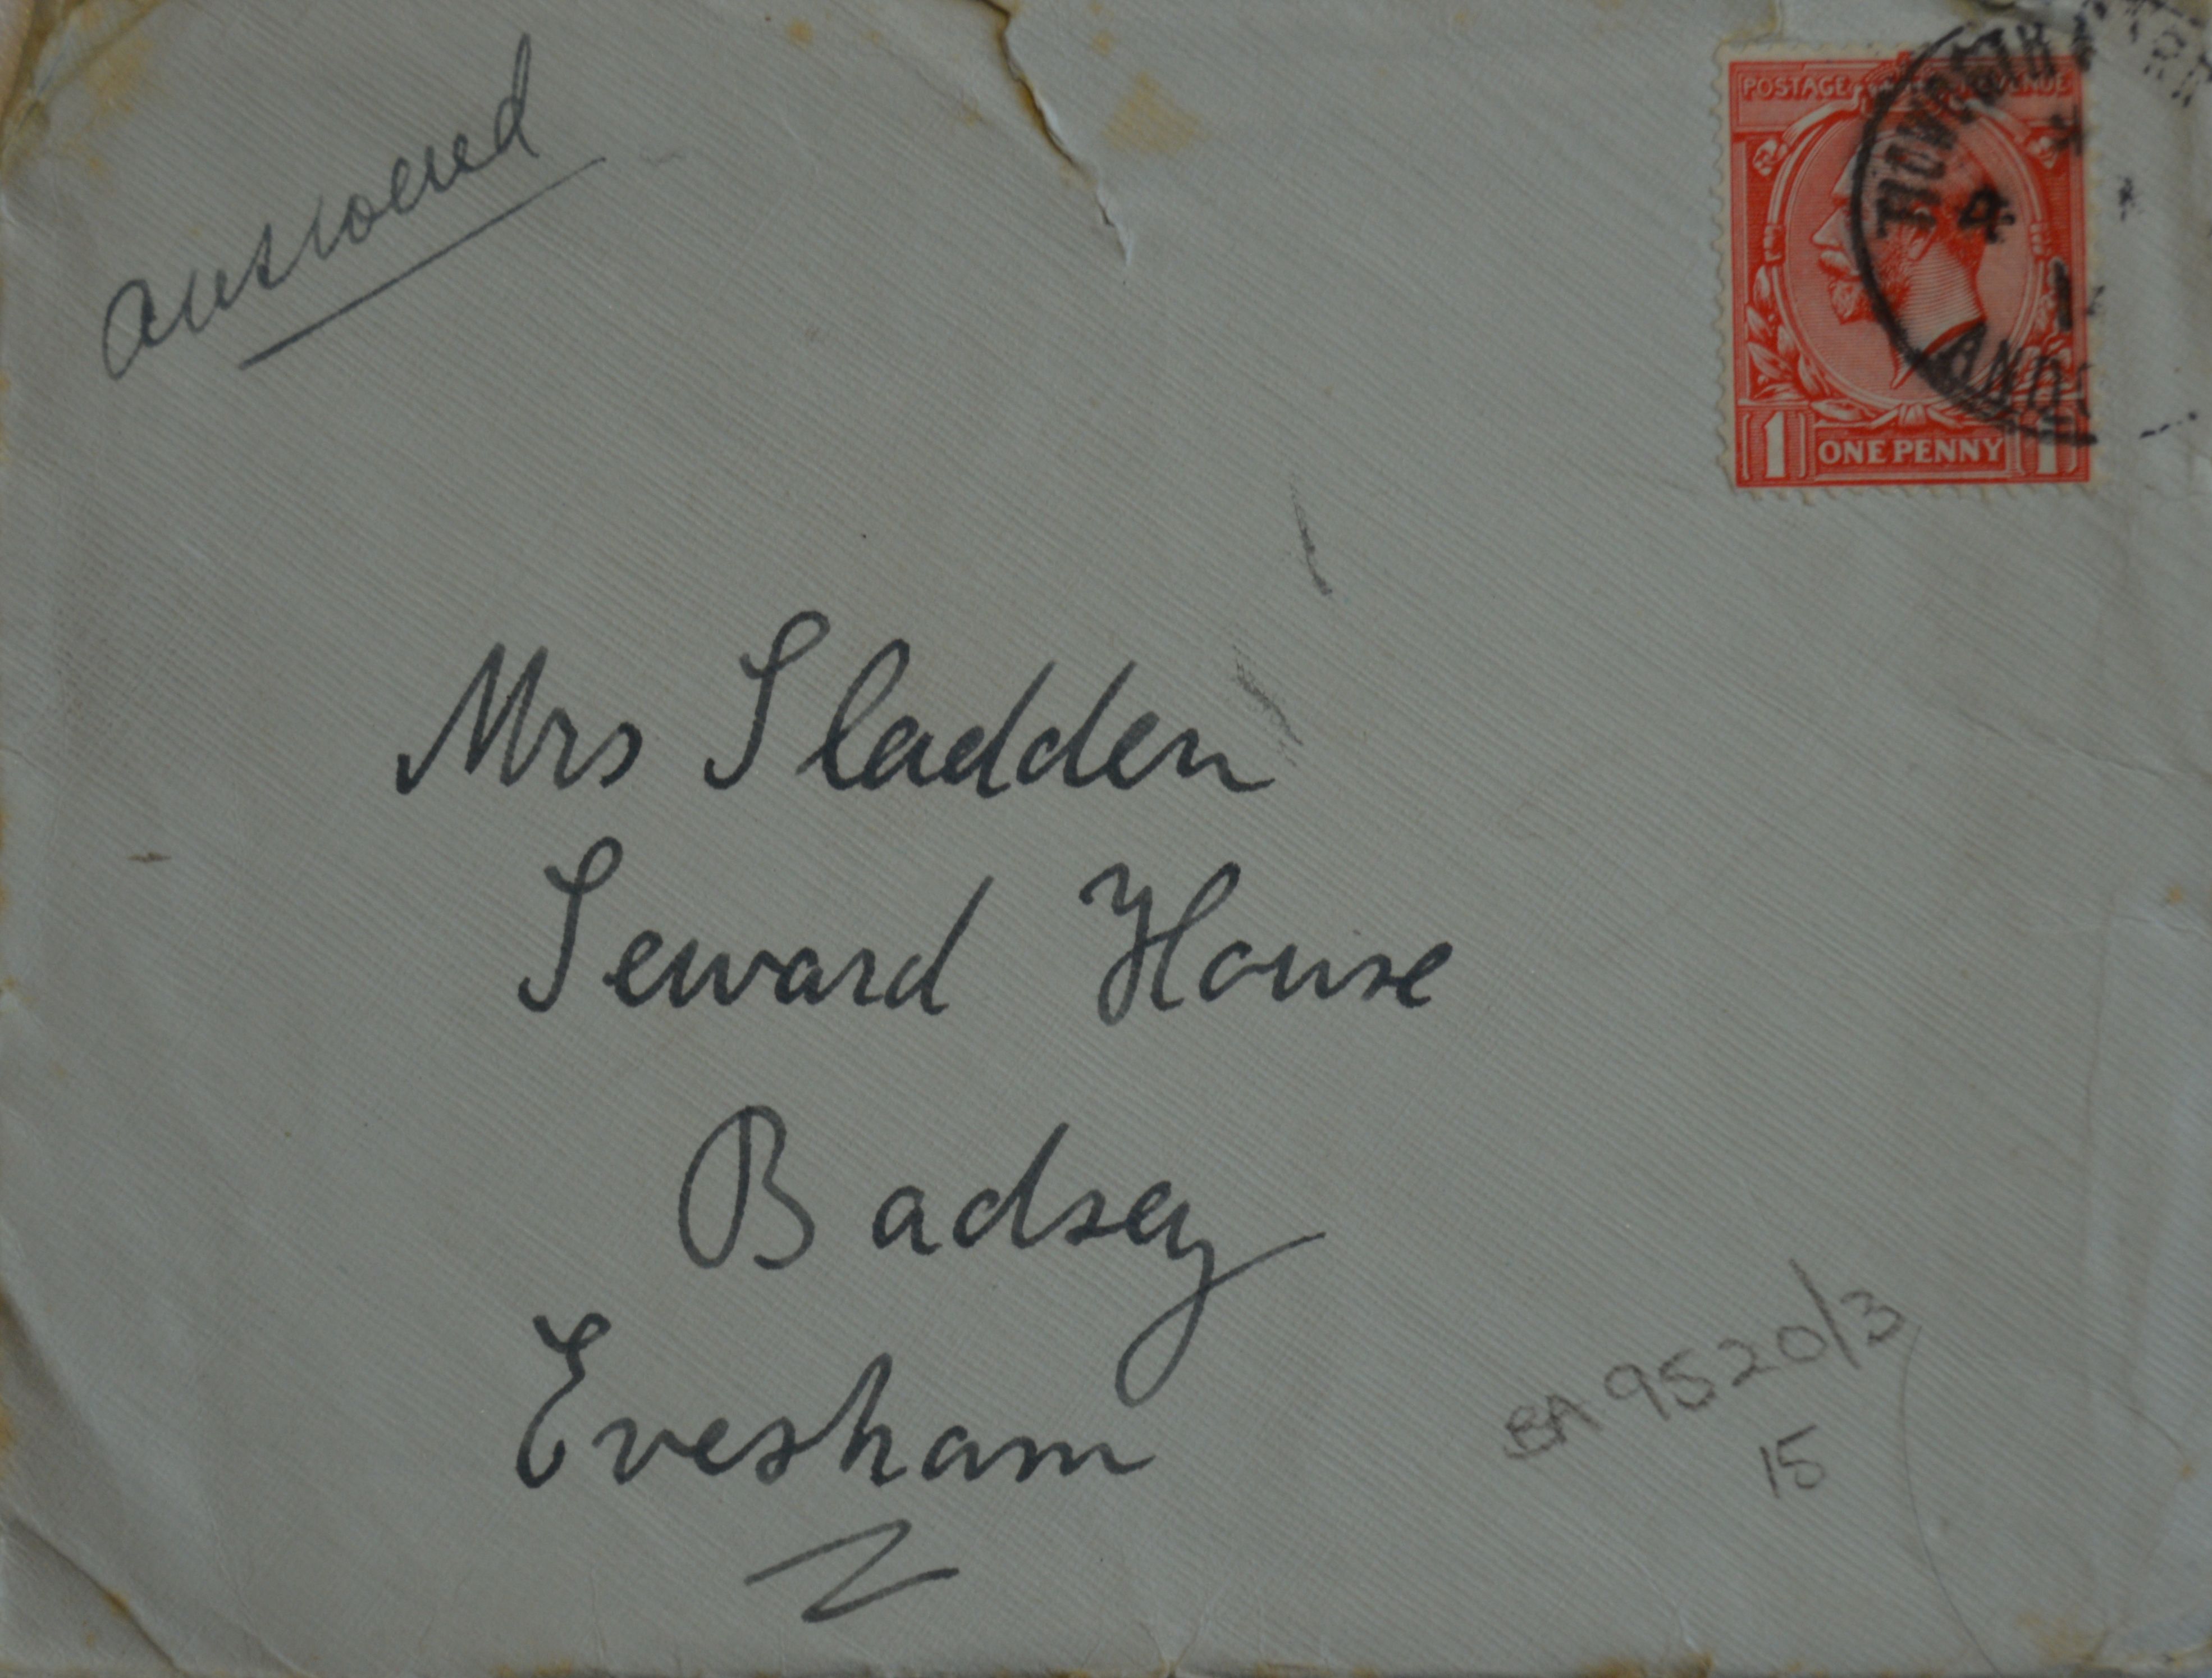 answered
POSTAGE REVENUE
1 ONE PENNY 1
Mrs Sladden
Seward House
Badsey
Evesham
BA 9520/3
15